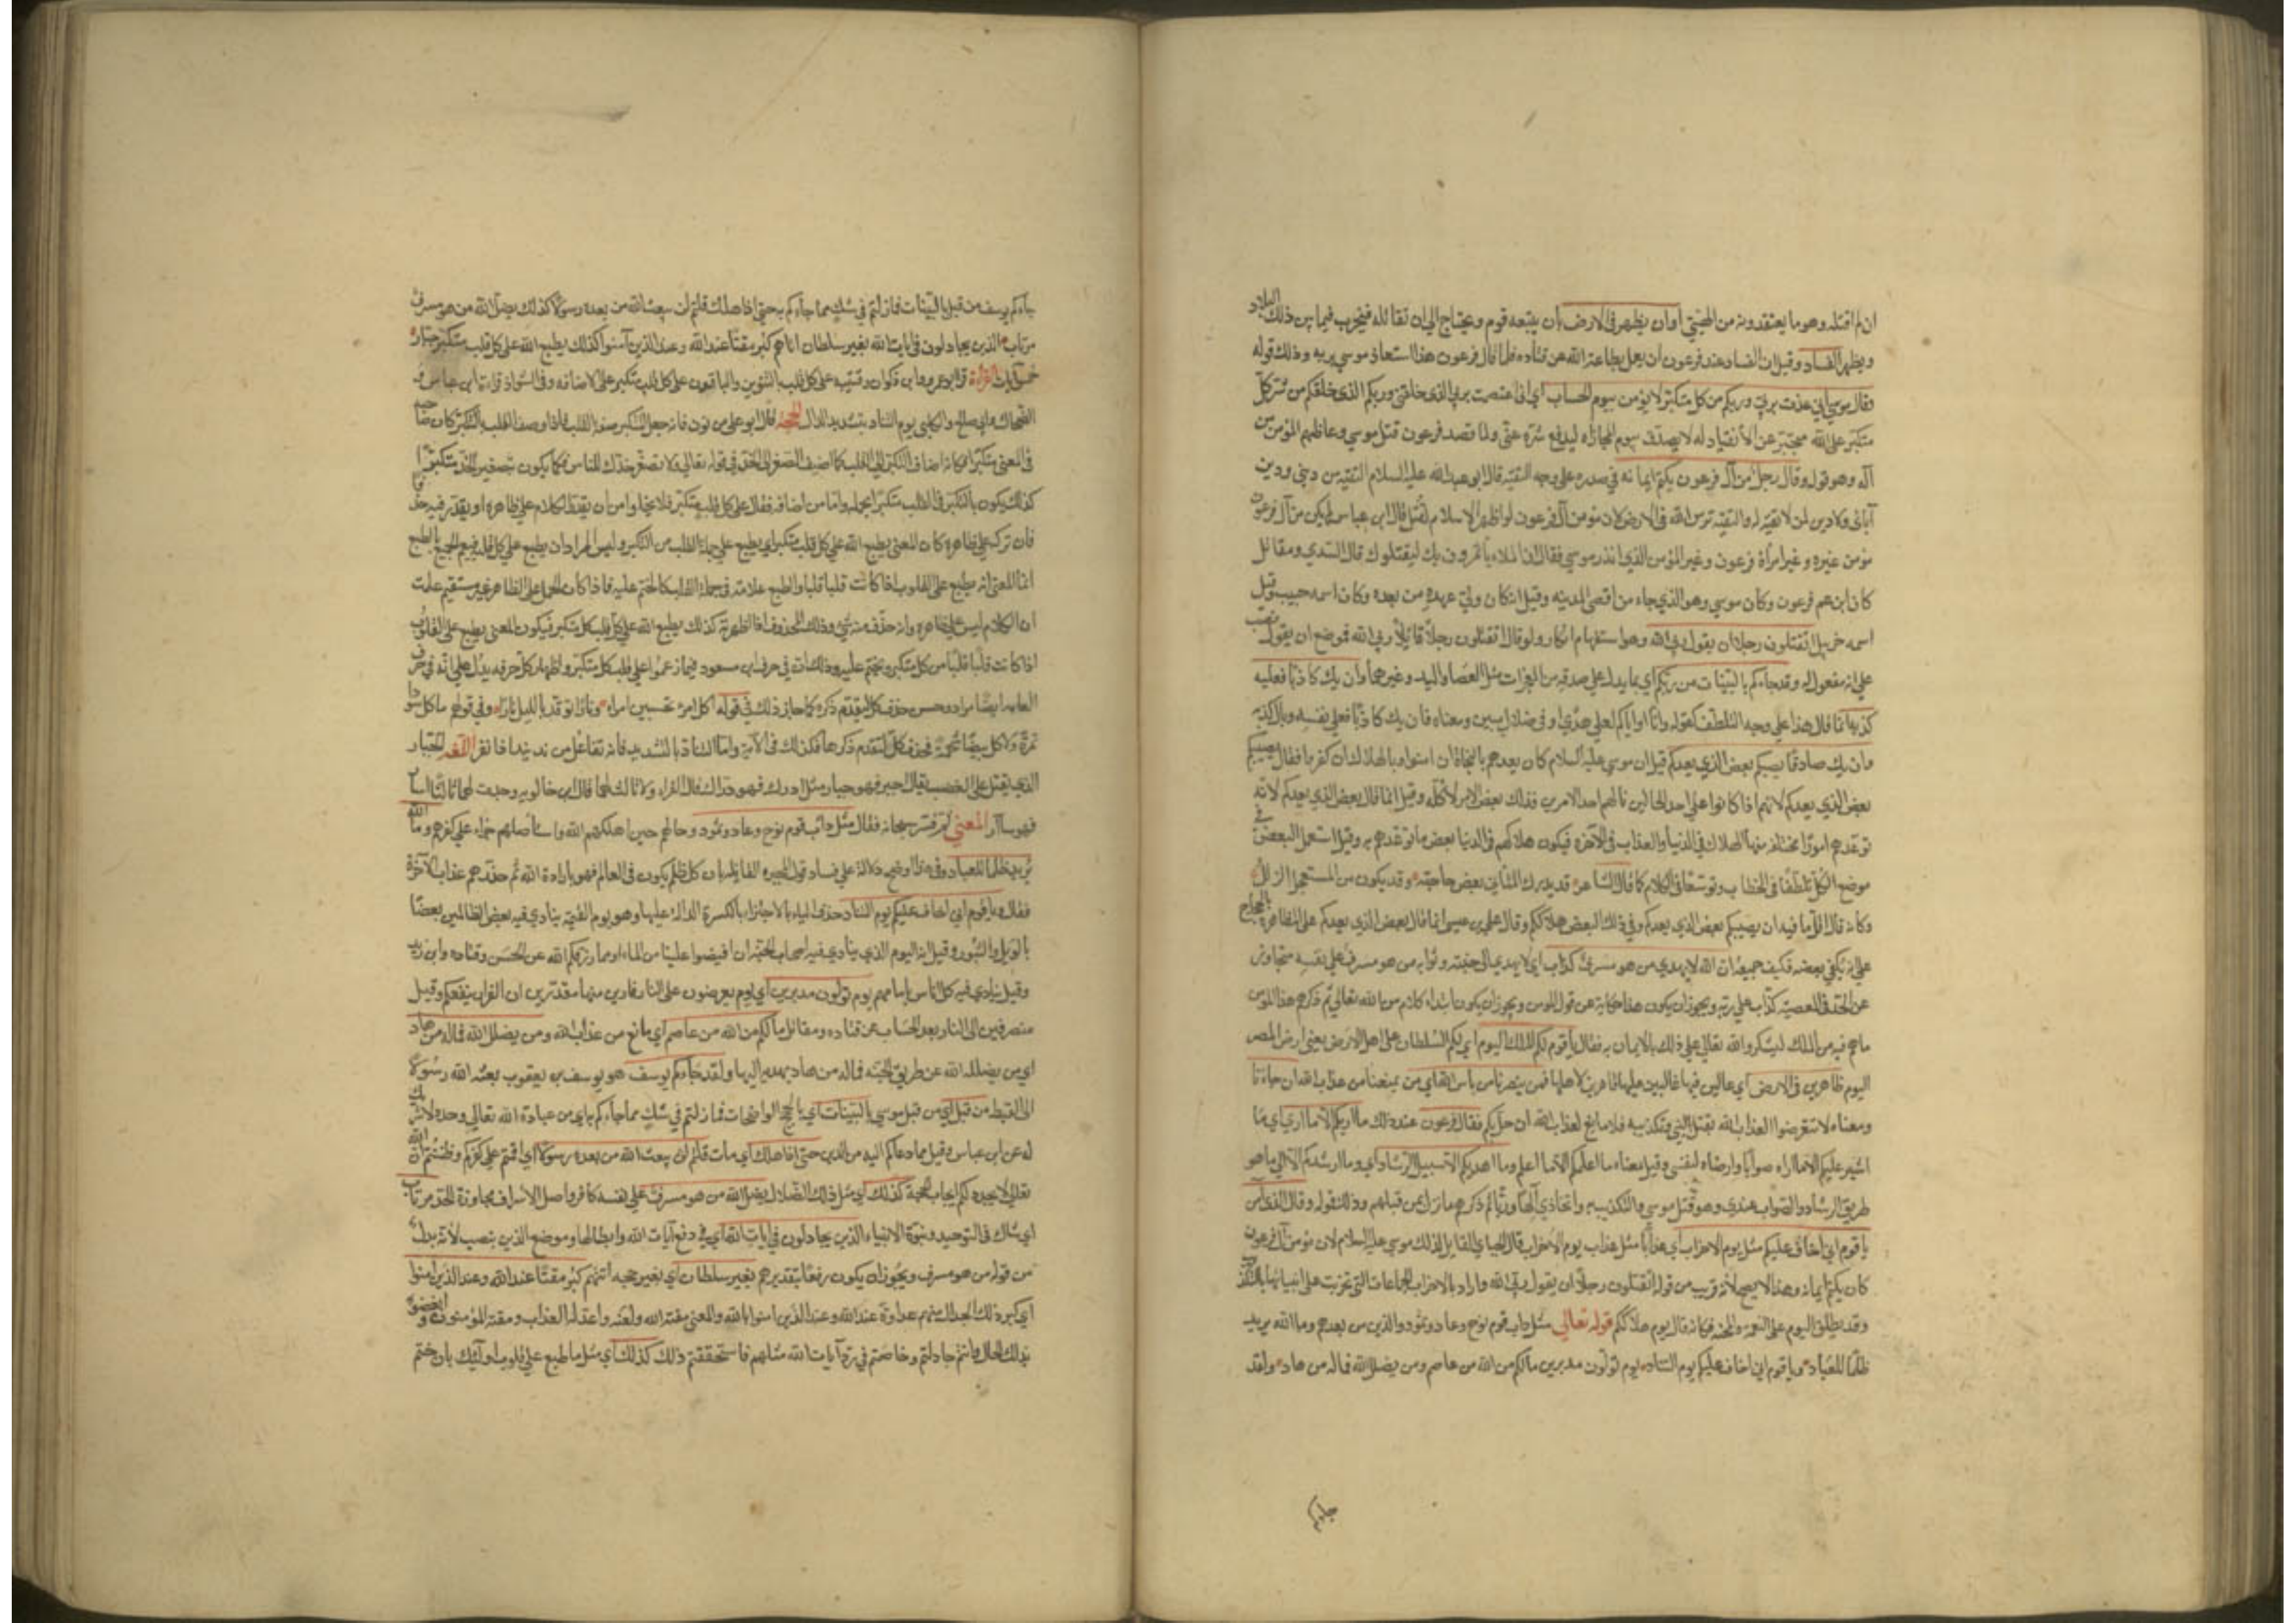 ان لم اقتله وهو ما يعتقدونه من الهيتي أوان يظهر في الارض بان يتبعه قوم ويحتاج الى ان نقاتله فيخرب فيما بين ذلك البلاد
ويظهر الفساد وقيل ان الفساد عند فرعون ان يعمل بطاعة الله عن قتاده فلما قال فرعون هذا استعاذ موسى بربه وذلك قوله
وقال موسى اني عذت بربي وربكم من كل متكبر لا يؤمن بيوم الحساب اي انى اعتصمت بربي الذى خلقني وربكم الذى خلقكم من شر كل
متكبر على الله متجبر عن الأنقياد له لا يصدق بيوم المجازاه ليدفع شره عني ولما قصد فرعون قتل موسى وعظهم المؤمن من
آله وهو قوله وقال رجل من آل فرعون يكتم ايمانه في صدره على وجه التقية قال ابو عبد الله عليه السلام التقيه من ديني ودين
آبائى ولا دين لمن لا تقية له والتقية ترس الله في الارض لان مؤمن آل فرعون لو اظهر الاسلام لقتل قال ابن عباس لم يكن من آل فرعون
مؤمن غيره وغير امرأة فرعون وغير المؤمن الذي انذر موسى فقال ان الملاء ياتمرون بك ليقتلوك قال السدي ومقاتل
كان ابن عم فرعون وكان موسى وهو الذي جاء من اقصى المدينه وقيل انه كان ولي عهده من بعده وكان اسمه حبيب وقيل
اسمه خربيل اتقتلون رجلا ان يقول ربي الله وهو استفهام انكار ولو قال اتقتلون رجلا قائلا ربي الله فموضع ان يقول نصب
على انه مفعول له وقد جاءكم بالبينات من ربكم اي بما يدل على صدقه من المعجزات مثل العصا واليد وغيرهما وان يك كاذبا فعليه
كذبه انما قال هذا على وجه التلطف كقوله وانا او اياكم لعلى هدى او في ضلال مبين ومعناه فان يك كاذبا فعلى نفسه وبال كذبه
وان يك صادقا يصبكم بعض الذي يعدكم قيل ان موسى عليه السلام كان يعدهم بالنجاة ان امنوا وبالهلاك ان كفروا فقال يصيبكم
بعض الذي يعدكم لانهم اذا كانوا على احد الحالين نالهم احد الامرين فذلك بعض الامر لا كله وقيل انما قال بعض الذي يعدكم لأنه
توعدهم امورا مختلفه منها الهلاك في الدنيا والعذاب في الآخره فيكون هلاكهم في الدنيا بعض ما توعدهم به وقيل استعمل البعض في
موضع الكل تلطفا في الخطاب وتوسعا في الكلام كما قال الشاعر قد يدرك المتأني بعض حاجته وقد يكون من المستعجل الزلل
وكانه قال اقل ما فيه ان يصيبكم بعض الذي يعدكم وفي ذلك البعض هلاككم وقال علي بن عيسى انما قال بعض الذي يعدكم على المظاهره بالحجاج
على انه يكفي بعضه فكيف جميعه ان الله لا يهدي من هو مسرف كذاب اي لا يهدي الى جنته وثوابه من هو مسرف على نفسه متجاوز
عن الحد في المعصية كذاب على ربه ويجوز ان يكون هذا حكاية عن قول المؤمن ويجوز ان يكون ابتداء كلام من الله تعالى ثم ذكرهم هذا المؤمن
ما هم فيه من الملك ليشكروا الله تعالى على ذلك بالايمان به فقال يا قوم لكم الملك اليوم اي لكم السلطان على اهل الارض يعنى ارض المصر
اليوم ظاهرين في الارض اي عالين فيها غالبين عليها قاهرين لاهلها فمن ينصرنا من بأس الله اي من يمنعنا من عذاب الله ان جاءنا
ومعناه لا تتعرضوا لعذاب الله بقتل النبي وتكذيبه فلا مانع لعذاب الله ان حل بكم فقال فرعون عند ذلك ما اريكم الا ما ارى اي ما
اشير عليكم الا بما اراه صوابا وارضاه لنفسي وقيل معناه ما اعلمكم الا ما اعلم وما اهديكم الا سبيل الرشاد اي وما ارشدكم الا الى ما هو
طريق الرشاد والصواب عندي وهو قتل موسى والتكذيب به واتخاذي آلها وربا ثم ذكرهم ما نزل بمن قبلهم وذلك قوله وقال الذى آمن
يا قوم اني اخاف عليكم مثل يوم الاحزاب اي عذابا مثل عذاب يوم الاحزاب قال الجبائي القايل لذلك موسى عليه السلام لان مؤمن آل فرعون
كان يكتم ايمانه وهذا لا يصح لانه قريب من قوله اتقتلون رجلا ان يقول ربي الله واراد بالاحزاب الجماعات التي تحزبت على انبيائها بالتكذيب
وقد يطلق اليوم على النعمة والمحنه فكانه قال يوم هلاككم قوله تعالى مثل داب قوم نوح وعاد وثمود والذين من بعدهم وما الله يريد
ظلما للعباد ويا قوم اني اخاف عليكم يوم التناد يوم تولون مدبرين ما لكم من الله من عاصم ومن يضلل الله فما له من هاد ولقد
جاءكم
جاءكم يوسف من قبل بالبينات فما زلتم في شك مما جاءكم به حتى اذا هلك قلتم لن يبعث الله من بعده رسولا كذلك يضل الله من هو مسرف
مرتاب الذين يجادلون في ايات الله بغير سلطان اتاهم كبر مقتا عند الله وعند الذين آمنوا كذلك يطبع الله على كل قلب متكبر جبار
خمس آيات القراءة قرا ابو عمرو وابن ذكوان وقتيبه على كل قلب بالتنوين والباقون على كل قلب متكبر على الاضافه وفي الشواذ قراءة ابن عباس و
الضحاك وابي صالح والكلبي يوم التناد بتشديد الدال الحجة قال ابو علي من نون فانه جعل التكبر صفة القلب فاذا وصف القلب بالتكبر كان صاحبه
في المعنى متكبرا فكانه اضاف التكبر الى القلب كما اضيف الصعر الى الخد في قوله تعالى ولا تصعر خدك للناس فكما يكون بتصعير الخد متكبرا
كذلك يكون بالتكبر في القلب متكبرا بجملته واما من اضافه فقال على كل قلب متكبر فلا يخلوا من ان يقدر الكلام على ظاهره او يقدر فيه حذفا
فان تركه على ظاهره كان المعنى يطبع الله على كل قلب متكبر اي يطبع على جملة القلب من المتكبر وليس المراد ان يطبع على كل قلب فيعم الجميع بالطبع
انما المعنى انه يطبع على القلوب اذا كانت قلبا قلبا والطبع علامة في جملة القلب كالختم عليه فاذا كان الحمل على الظاهر غير مستقيم علمت
ان الكلام ليس على ظاهره وانه حذف منه شيء وذلك المحذوف اذا اظهرته كذلك يطبع الله على كل قلب كل متكبر فيكون المعنى يطبع على القلوب
اذا كانت قلبا قلبا من كل متكبر ويختم عليه وذلك انه في حرف ابن مسعود فيما زعموا على قلب كل متكبر واظهار كل حرفه يدل على انه في حرف
العامه ايضا مراد وحسن حذف كل لتقدم ذكره كما جاز ذلك في قوله اكل امرء تحسبين امراء ونارا توقد بالليل نارا وفي قولهم ما كل سوداء
تمرة ولا كل بيضاء شحمة فحذف كل لتقدم ذكرها فكذلك في الآية واما التناد بالتشديد فانه تفاعل من ند يند اذا نفر اللغه الجبار
الذي يقتل على الغضب يقال اجبر فهو جبار مثل ادرك فهو دراك قال الفراء ولا ثالث لهما قال ابن خالويه وجدت لهما ثالثا اسأر
فهو سأار المعنى ثم فسر سبحانه فقال مثل داب قوم نوح وعاد وثمود وحالهم حين اهلكهم الله واستأصلهم جزاء على كفرهم وما الله
يريد ظلما للعباد وفي هذا اوضح دلالة على فساد قول المجبرة القايله بان كل ظلم يكون في العالم فهو بارادة الله ثم حذرهم عذاب الآخرة
فقال ويا قوم اني اخاف عليكم يوم التناد حذف الياء بالاجتزاء بالكسرة الدالة عليها وهو يوم القيمة ينادي فيه بعض الظالمين بعضا
بالويل والثبور وقيل انه اليوم الذي ينادي فيه اصحاب الجنة ان افيضوا علينا من الماء او مما رزقكم الله عن الحسن وقتاده وابن زيد
وقيل ينادي فيه كل اناس بامامهم يوم تولون مدبرين اي يوم يعرضون على النار فارين منها مقدرين ان الفرار ينفعكم وقيل
منصرفين الى النار بعد الحساب عن قتاده ومقاتل ما لكم من الله من عاصم اي مانع من عذاب الله ومن يضلل الله فما له من هاد
اي من يضلل الله عن طريق الجنة فما له من هاد يهديه اليها ولقد جاءكم يوسف هو يوسف بن يعقوب بعثه الله رسولا
الى القبط من قبل اي من قبل موسى بالبينات اي بالحجج الواضحات فما زلتم في شك مما جاءكم به اي من عبادة الله تعالى وحده لا شريك
له عن ابن عباس وقيل مما دعاكم اليه من الدين حتى اذا هلك اي مات قلتم لن يبعث الله من بعده رسولا اي اقمتم على كفركم وظننتم ان الله
تعالى لا يجدد لكم ايجاب الحجة كذلك اي مثل ذلك الضلال يضل الله من هو مسرف على نفسه كافر واصل الاسراف مجاوزة الحد مرتاب
اي شاك في التوحيد ونبوة الانبياء الذين يجادلون في ايات الله اي في دفع آيات الله وابطالها وموضع الذين نصب لأنه بدل
من قوله من هو مسرف ويجوز ان يكون رفعا بتقدير هم بغير سلطان اي بغير حجه اتتهم كبر مقتا عند الله وعند الذين امنوا
اي كبر ذلك الجدال منهم عداوة عند الله وعند الذين امنوا بالله والمعنى مقته الله ولعنه واعد له العذاب ومقته المؤمنون و ابغضوه
بذلك الجدال وانتم جادلتم وخاصمتم في رد آيات الله مثلهم فاستحققتم ذلك كذلك اي مثل ما طبع على قلوب اولئك بان ختم